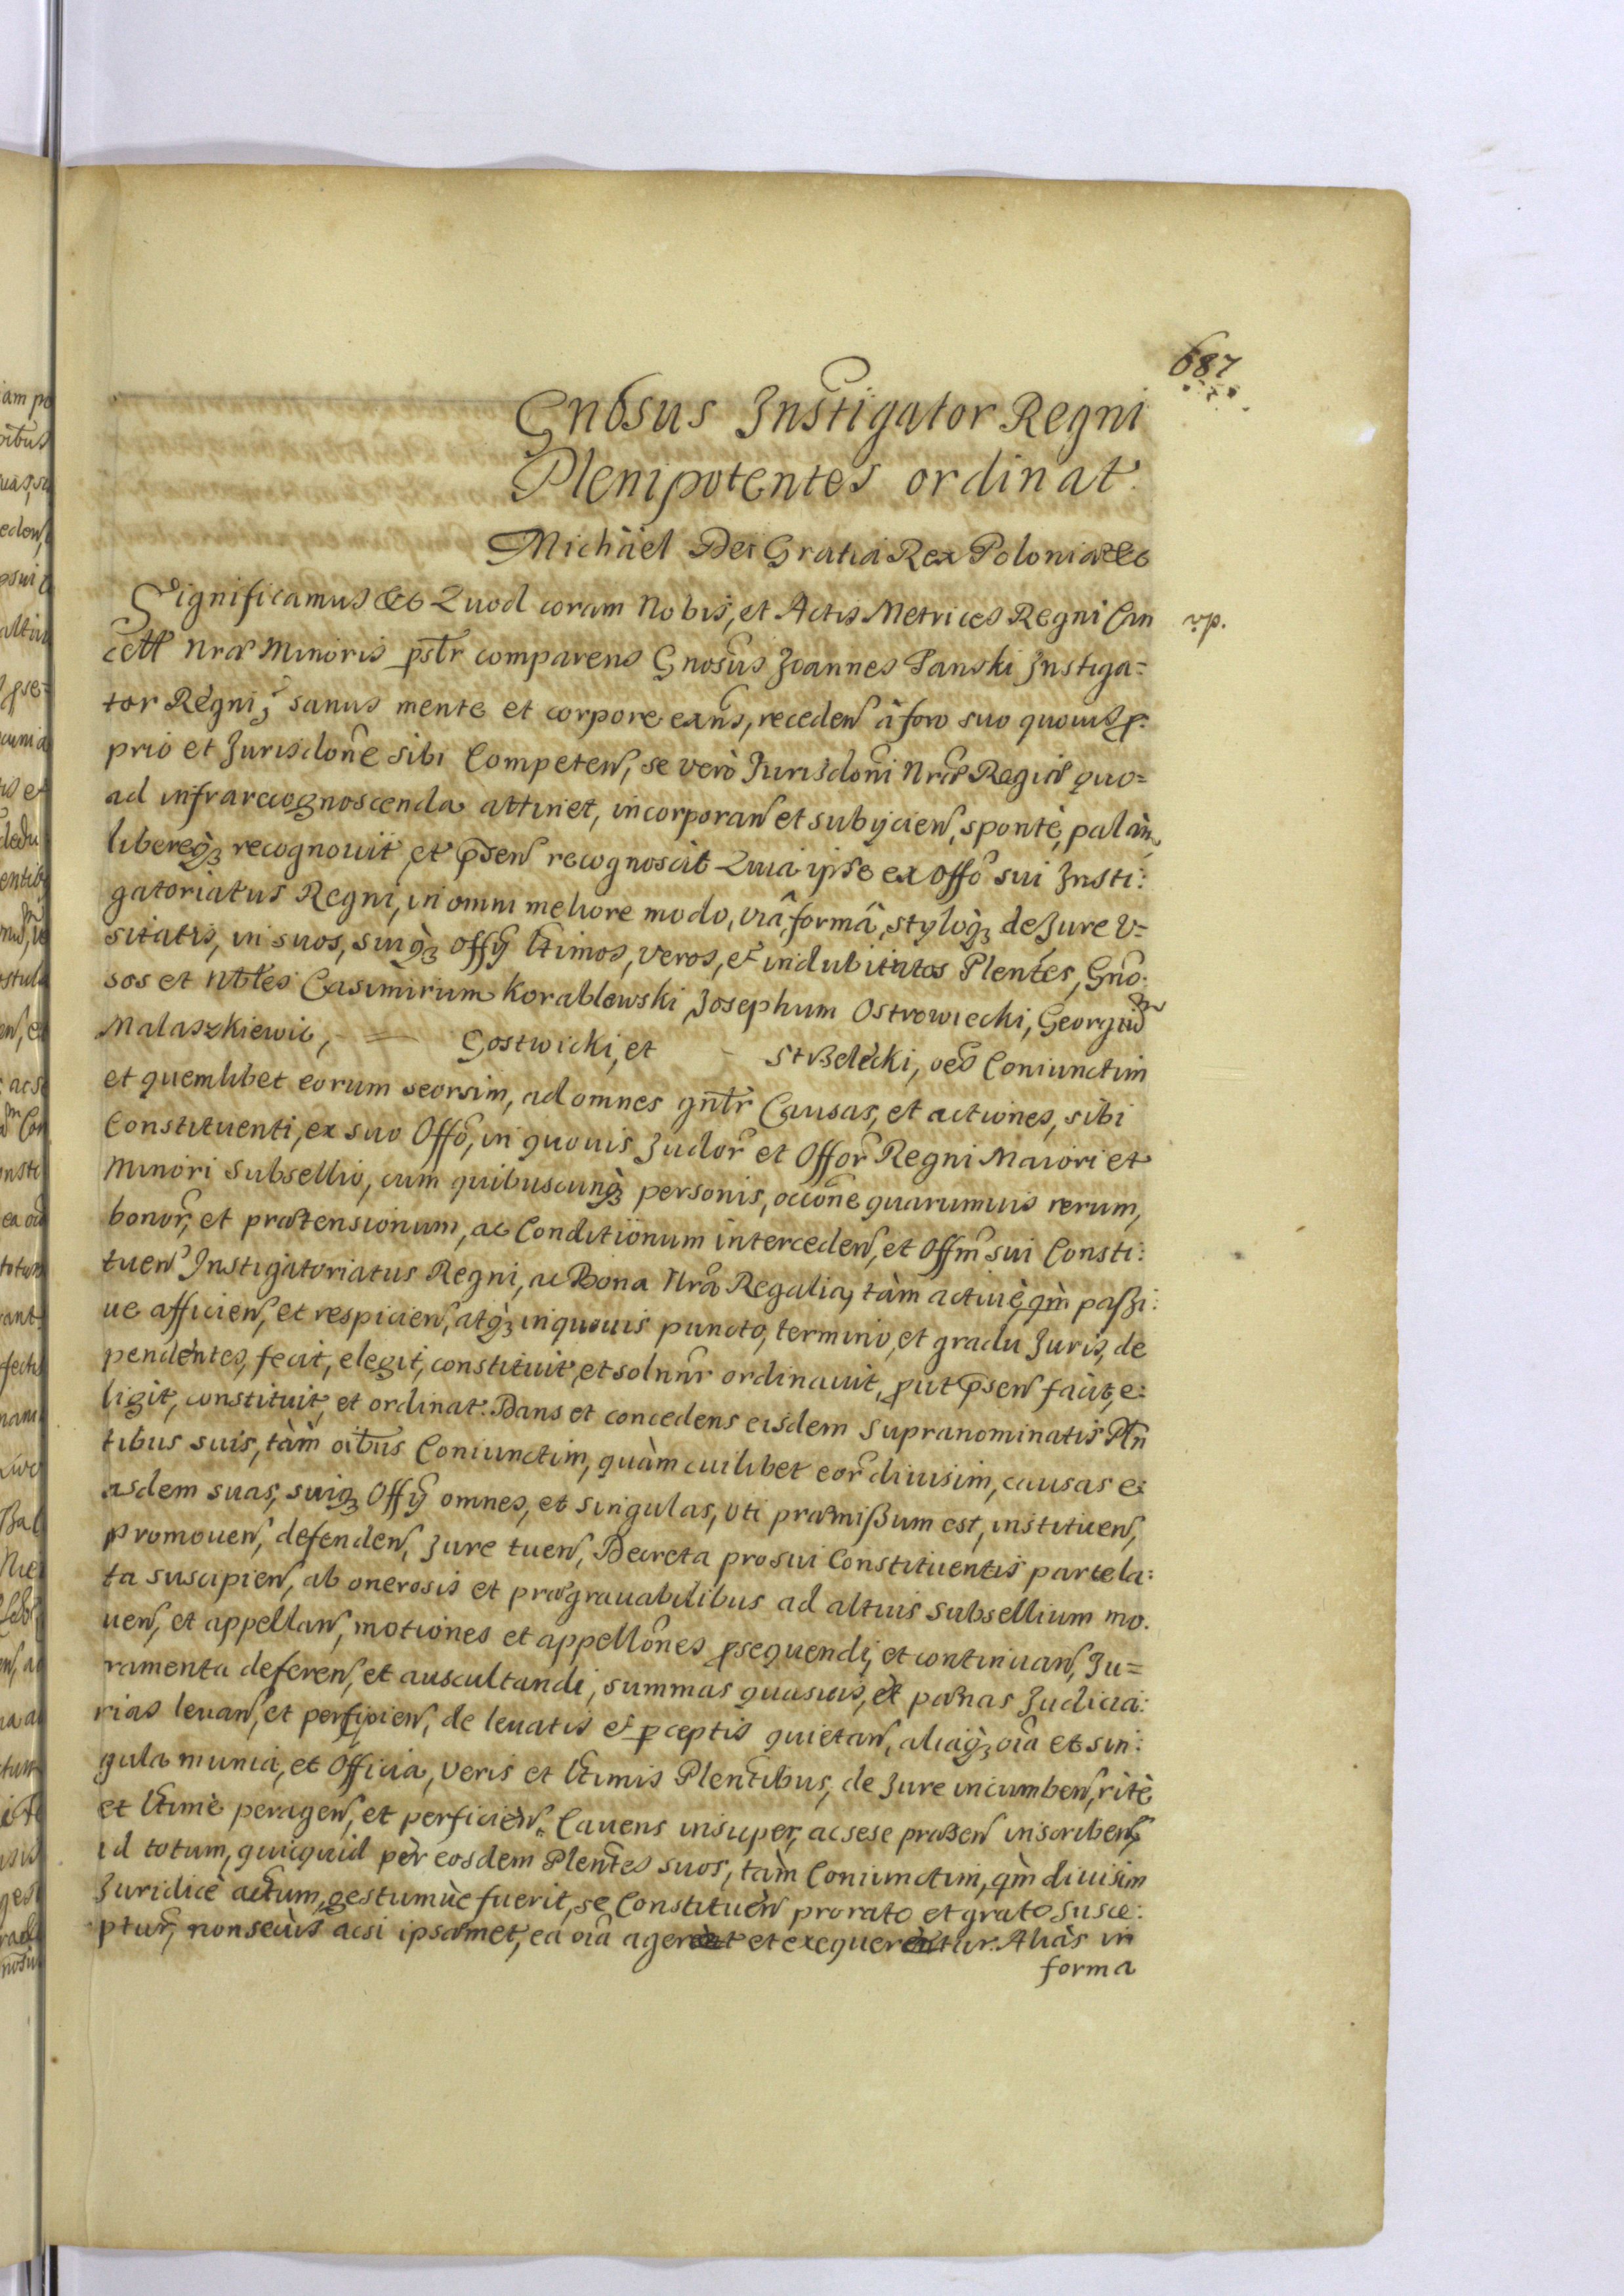 687
Gnosus Instigator Regni
Plenipotentes ordinat.
Michäel Dei Gratia Rex Poloniæ &c
Significamus &c Quod coram Nobis, et Actis Metrices Regni Can
vp.
cell Nræ Minoris pstr comparens Gnosus Joannes Panski Instiga=
tor Regni, sanus mente et corpore exns, receden à foro suo quouis p.
prio et Jurisdone sibi Competen, se verò Jurisdoni Nræ Regiæ quo=
ad infrarecognoscenda attinet, incorporan et subijcien, sponte, palàm,
libereqꝫ recognouit, et psen recognoscit Quia ipse ex Offo sui Insti:
gatoriatus Regni, in omni meliore modo, viâ, formâ, styloqꝫ de Jure v=
sitatis, in suos, suiqꝫ Offij ltimos, veros, et indubitatos Plentes, Gno.
sos et Nbles Casimirum Korablewski, Josephum Ostrowiecki, Georgium
Malaszkiewic, = Gostwicki, et - Strzelecki, oes Coniunctim
et quemlibet eorum seorsim, ad omnes gntr Causas, et actiones, sibi
Constituenti, ex suo Offo, in quouis Judor et Offor Regni Maiori et
Minori Subsellio, cum quibuscunqꝫ personis, occone quarumuis rerum,
bonor, et prætensionum, ac Conditionum interceden, et Offm sui Consti:
tuen Instigatoriatus Regni, ac Bona Nra Regalia, tàm actiuè, qm paßi:
ue afficien, et respicien, atqꝫ in quouis puncto, termino, et gradu Juris, de
pendentes, fecit, elegit, constituit, et solnnr ordinauit, put psen facit, e:
ligit, constituit, et ordinat. Dans et concedens eisdem Supranominatis Pln
tibus suis, tàm oibus Coniunctim, quàm cuilibet eor diuisim, causas e:
asdem suas, suiqꝫ Offij omnes, et singulas, vti præmißum est, instituen,
promouen, defenden, Jure tuen, Decreta pro sui Constituentis parte la:
ta suscipien, ab onerosis et prægrauabilibus ad altius subsellium mo.
uen, et appellan, motiones et appellones psequendi, et continuan, Ju=
ramenta deferen, et auscultandi, summas quasuis, et pœnas Judicia:
rias leuan, et percipien, de leuatis et pceptis quietan, aliaqꝫ oia et sin:
gula munia, et Officia, veris et ltimis Plentibus, de Jure incumben, ritè
et ltimè peragen, et perficien. Cauens insuper, ac sese præsen inscribens,
id totum, quicquid per eosdem Plentes suos, tàm Coniunctim, qm diuisim
Juridicè actum, gestumùe fuerit, se Constituen pro rato et grato susce:
ptur, non secùs acsi ipsæmet, ea oia ageret et exequeretur. Aliàs in
forma